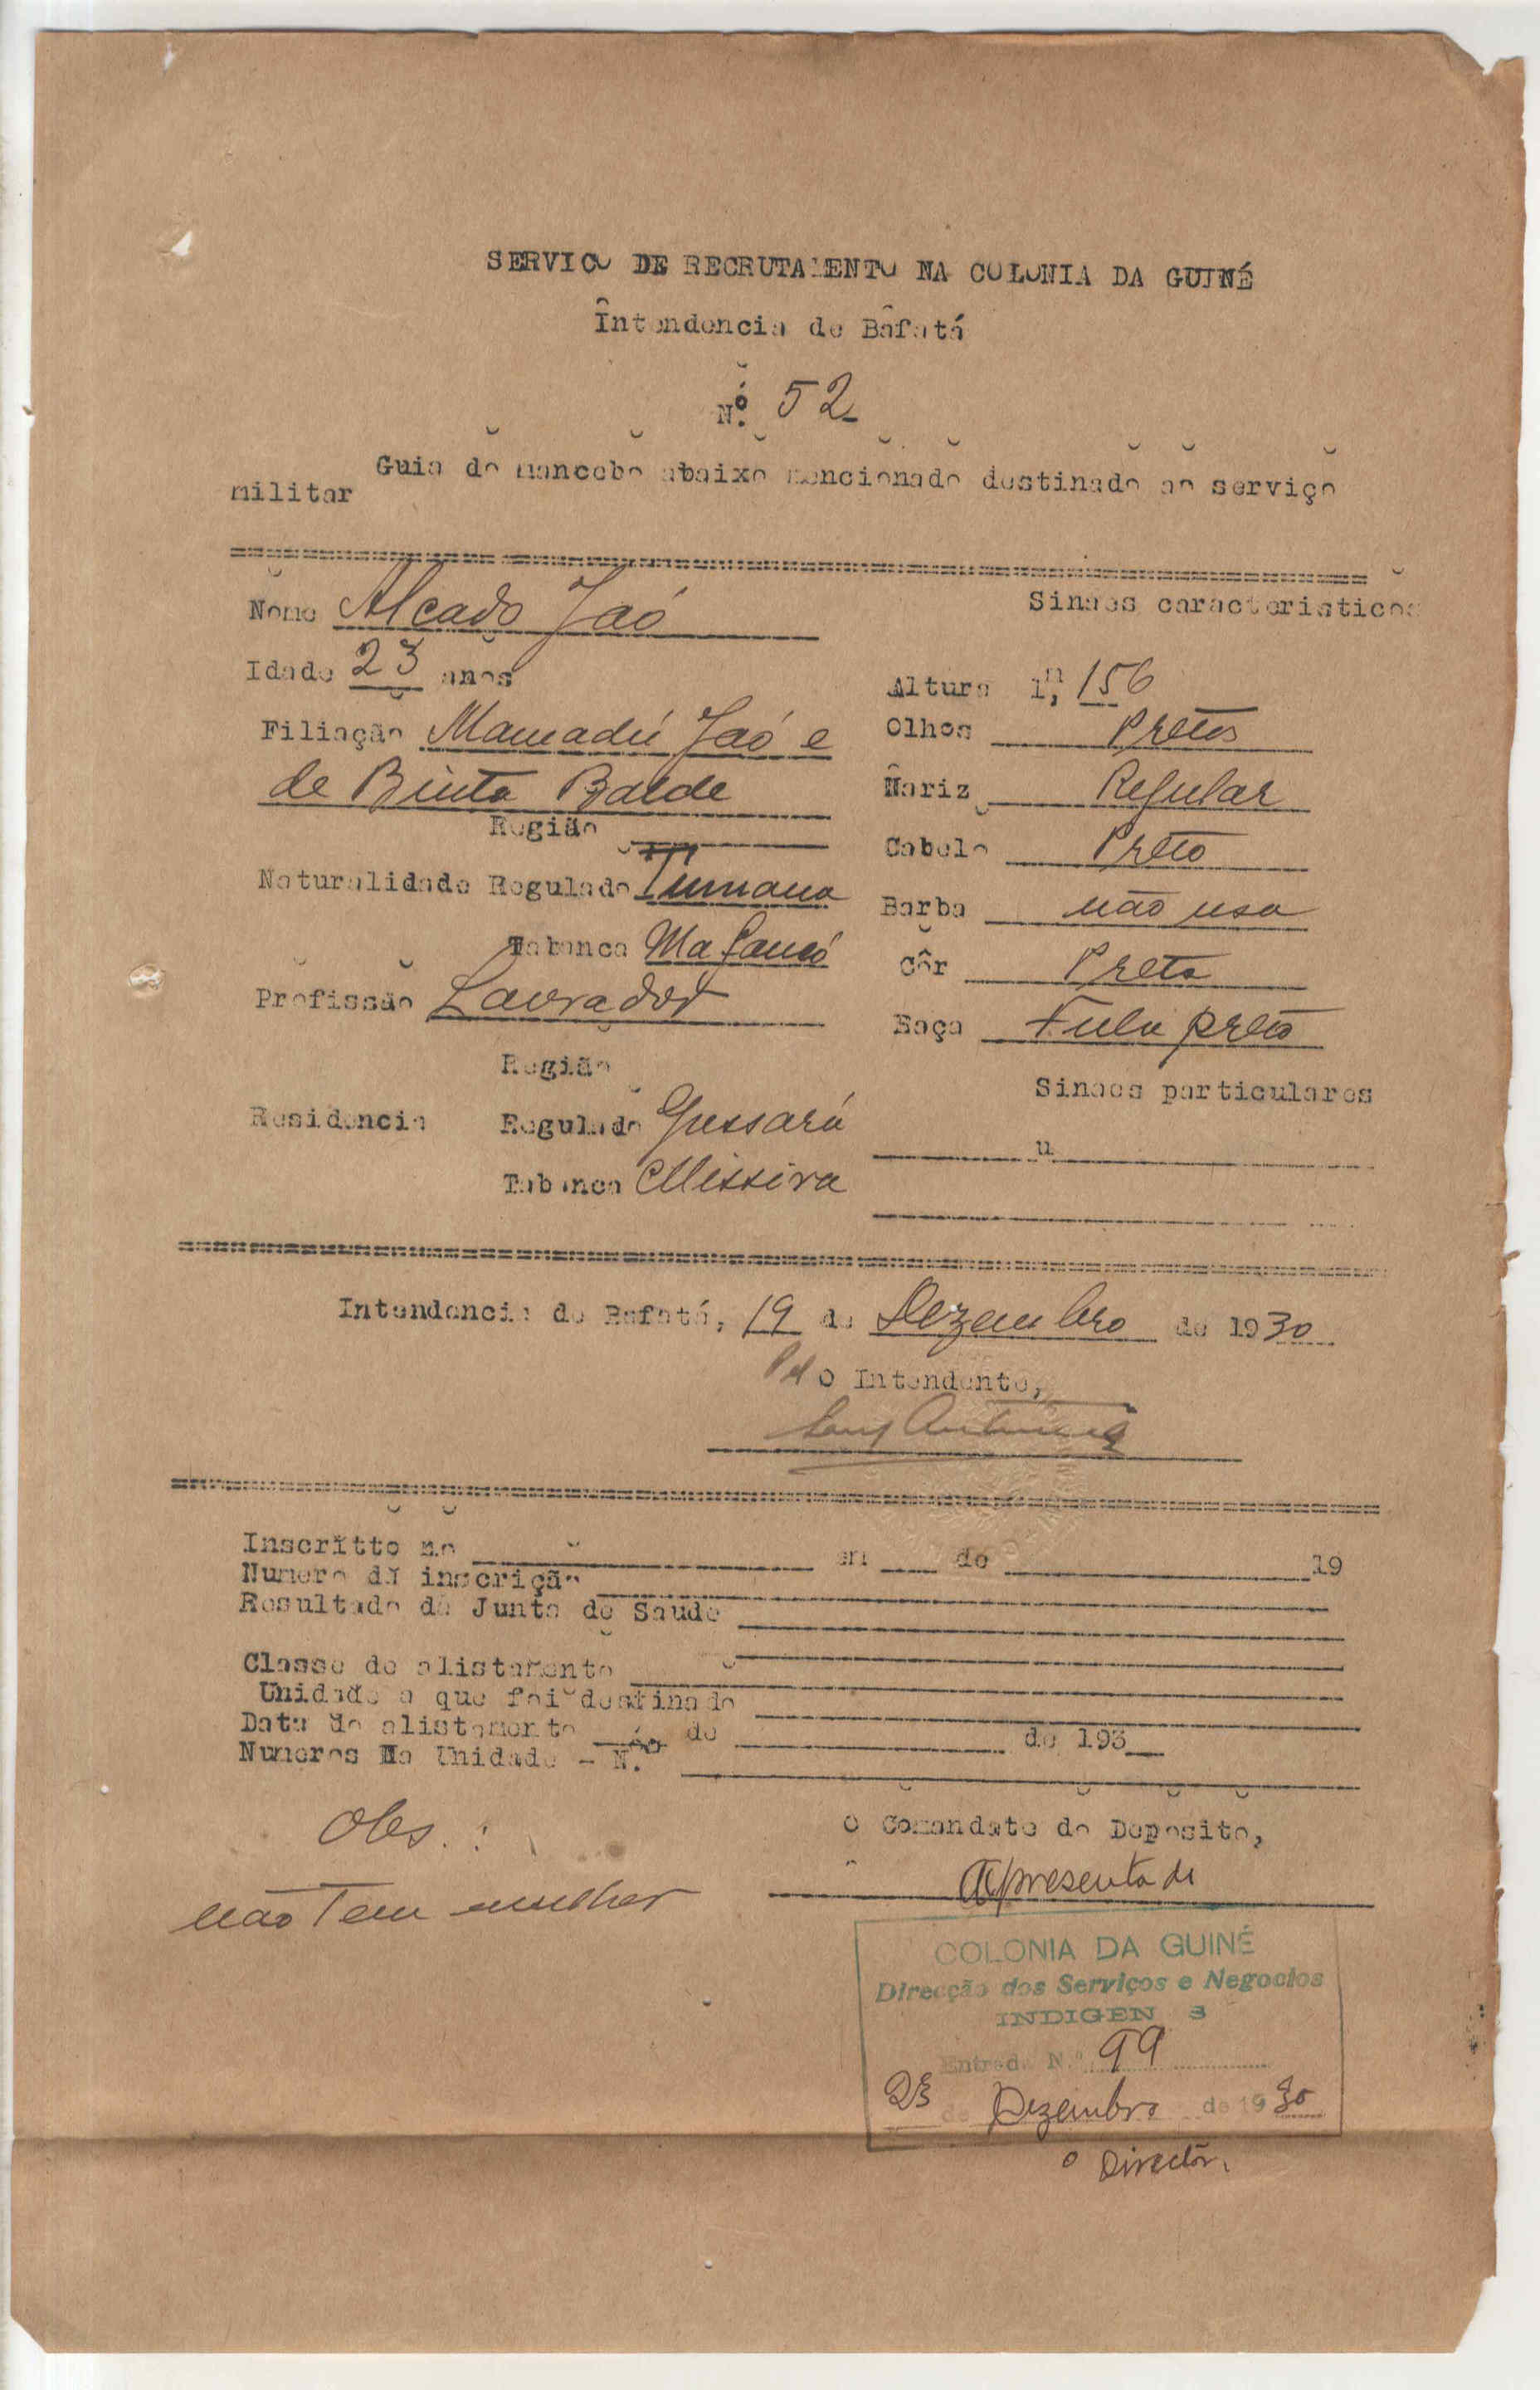 SERVIÇO DE RECRUTAMENTO NA COLONIA DA GUINÉ
Intendencia de Bafatá
N.º 52
Guia do mancebo abaixo mencionado destinado ao serviço
militar
Nome Alcado Jaó
Idade 23 anos
Filiação Mamadú Jaó e
de Binta Balde
Região
Naturalidade Regulado Tumana
Tabanca
Profissão Lavrador
Região
Residencia Regulado Gussará
Tabanca Missira
Sinaes caracteristicos
Altura 1m, 156
Olhos Pretos
Nariz Regular
Cabelo Preto
Barba não usa
Côr Preta
Raça Fula preto
Sinaes particulares
"
Intendencia de Bafatá, 19 de Dezembro de 1930
Pel O Intendente,
Inscritto no em de 19
Numero da inscrição
Resultado da Junta de Saude
Classe do alistamento
Unidade a que foi destinado
Data do alistamento de de 193
Numeros na Unidade - N.º
Obs.:
não Tem mulher
O Comandate do Deposito,
Apresentado
COLONIA DA GUINÉ
Direcção dos Serviços e Negocios
INDIGEN S
Entrada N.º 99
23 de Dezembro de 1930
O Director,